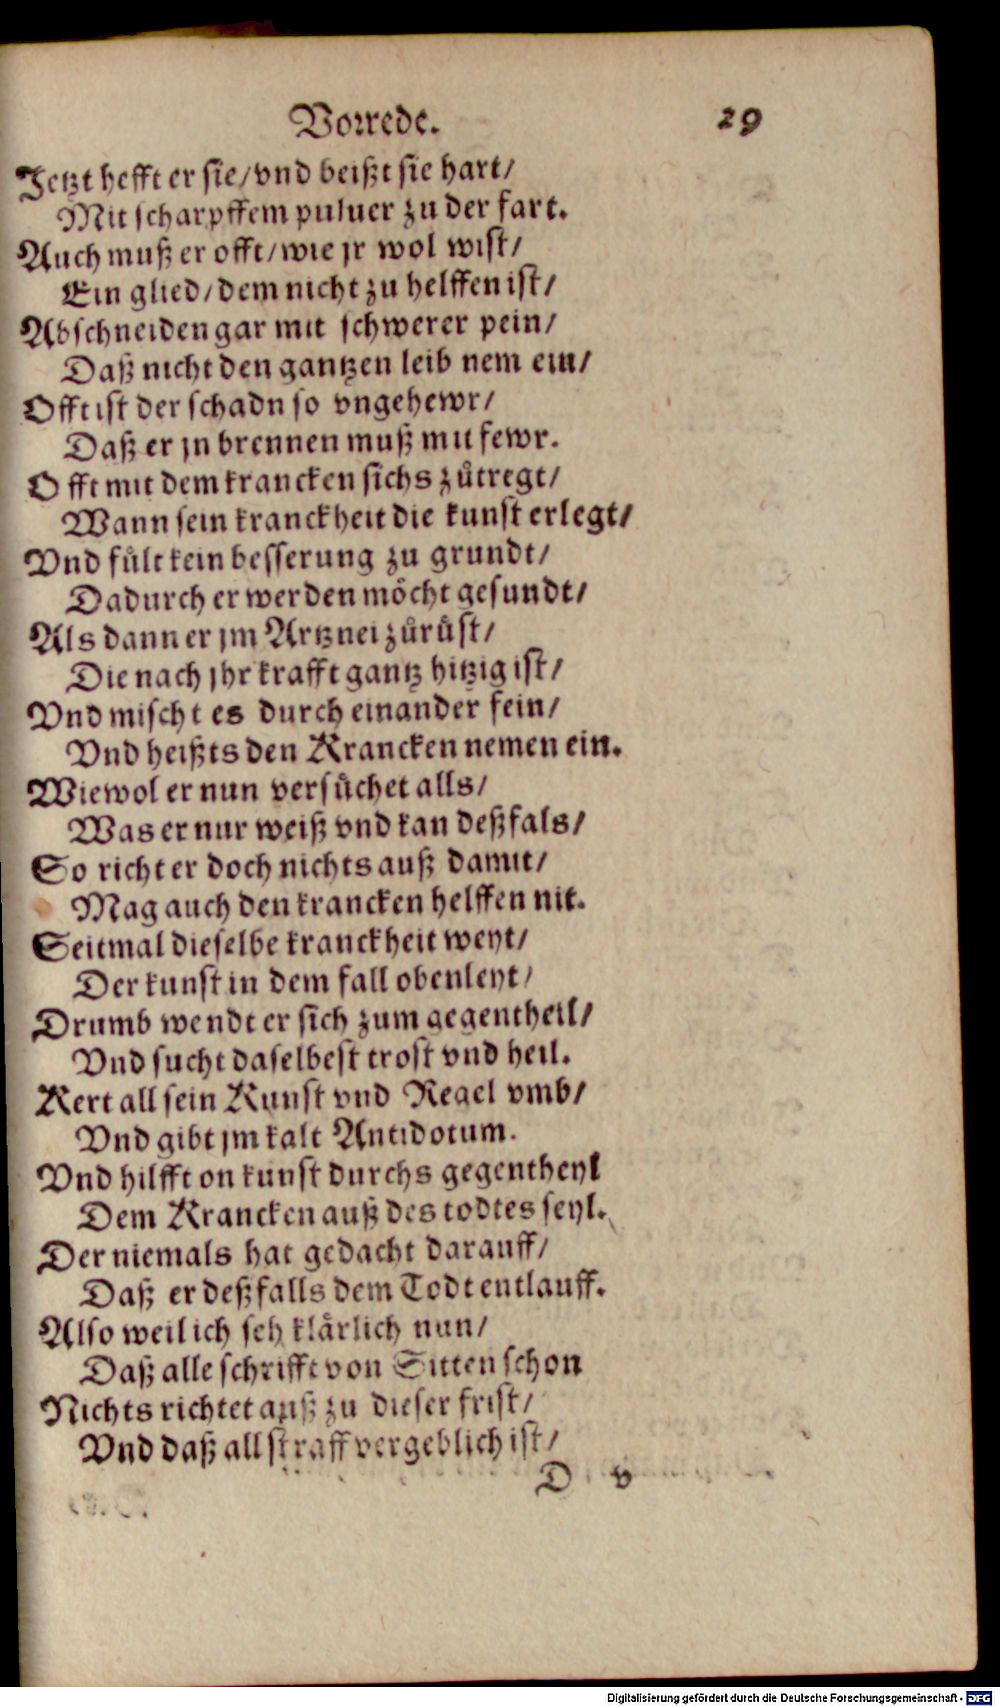 Vorrede. 29
Jetzt hefft er sie/ vnd beißt sie hart/
Mit scharpffem puluer zu der fart.
Auch muß er offt/ wie jr wol wist/
Ein glied/ dem nicht zu helffen ist/
Abschneiden gar mit schwerer pein/
Daß nicht den gantzen leib nem ein/
Offt ist der schadn so vngehewr/
Daß er jn brennen muß mit fewr.
Offt mit dem krancken sichs zůtregt/
Wann sein kranckheit die kunst erlegt/
Vnd fůlt kein besserung zu grundt/
Dadurch er werden möcht gesundt/
Als dann er jm Artznei zůrůst/
Die nach jhr krafft gantz hitzig ist/
Vnd mischt es durch einander fein/
Vnd heißts den Krancken nemen ein.
Wiewol er nun versůchet alls/
Was er nur weiß vnd kan deßfals/
So richt er doch nichts auß damit/
Mag auch den krancken helffen nit.
Seitmal dieselbe kranckheit weyt/
Der kunst in dem fall obenleyt/
Drumb wendt er sich zum gegentheil/
Vnd sucht daselbest trost vnd heil.
Kert all sein Kunst vnd Regel vmb/
Vnd gibt jm kalt Antidotum.
Vnd hilfft on kunst durchs gegentheyl
Dem Krancken auß des todtes seyl.
Der niemals hat gedacht darauff/
Daß er deßfalls dem Todt entlauff.
Also weil ich seh klårlich nun/
Daß alle schrifft von Sitten schon
Nichts richtet auß zu dieser frist/
Vnd daß all straff vergeblich ist/
D v
Digitalisierung gefördert durch die Deutsche Forschungsgemeinschaft - DFG